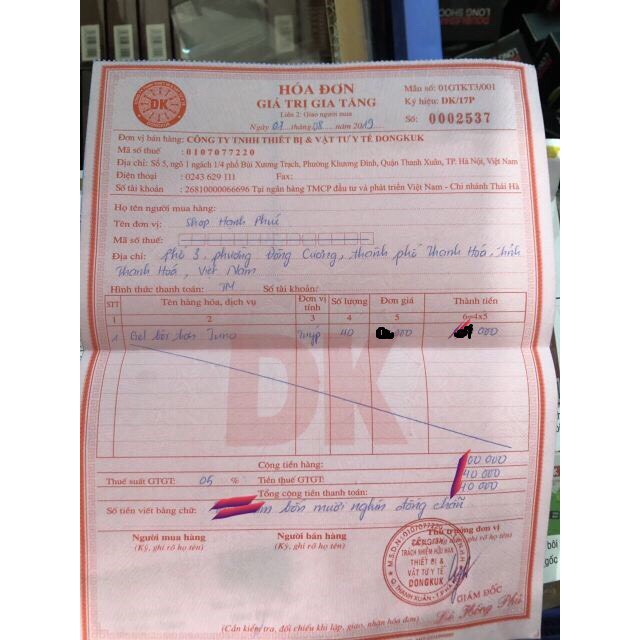 HÓA ĐƠN
GIÁ TRỊ GIA TĂNG
Liên 2: Giao người mua
Ngày 07 tháng 08 năm 2019
Mẫu số: 01GTKT3/001
Ký hiệu: DK/17P
Số: 0002537
DK
Đơn vị bán hàng: CÔNG TY TNHH THIẾT BỊ & VẬT TƯ Y TẾ DONGKUK
Mã số thuế : 0107077220
Địa chỉ: Số 5, ngõ 1 ngách 1/4 phố Bùi Xương Trạch, Phường Khương Đình, Quận Thanh Xuân, TP. Hà Nội, Việt Nam
Điện thoại : 0243 629 111 Fax:
Số tài khoản : 26810000066696 Tại ngân hàng TMCP đầu tư và phát triển Việt Nam - Chi nhánh Thái Hà
Họ tên người mua hàng:
Tên đơn vị: Shop Hạnh Phúc
Mã số thuế:
Địa chỉ: Phố 3, phường Đông Cương, thành phố Thanh Hoá, Tỉnh
Thanh Hoá, Việt Nam
Hình thức thanh toán: TM Số tài khoản:
STT Tên hàng hóa, dịch vụ Đơn vị tính Số lượng Đơn giá Thành tiền
1 2 3 4 5 6=4x5
1 Gel bôi trơn Tuýp 40 000 000
DK
Cộng tiền hàng: 00 000
Thuế suất GTGT: 05 % Tiền thuế GTGT: 40 000
Tổng cộng tiền thanh toán: 40 000
Số tiền viết bằng chữ: bốn mươi nghìn đồng chẵn
Người mua hàng Người bán hàng Thủ trưởng đơn vị
(Ký, ghi rõ họ tên) (Ký, ghi rõ họ tên)
M.S.D.N: 0107077220
CÔNG TY
TRÁCH NHIỆM HỮU HẠN
THIẾT BỊ &
VẬT TƯ Y TẾ
DONGKUK
Q. THANH XUÂN - T.P HÀ NỘI
GIÁM ĐỐC
Lê Hồng Phú
(Cần kiểm tra, đối chiếu khi lập, giao, nhận hóa đơn)